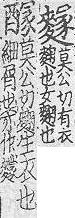 莫公切有衣
麴也女麴也
莫公切麴生衣也
細屑也亦作